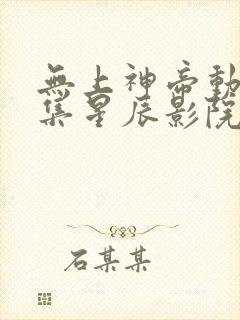 無上神帝動
集星辰影院
石某某